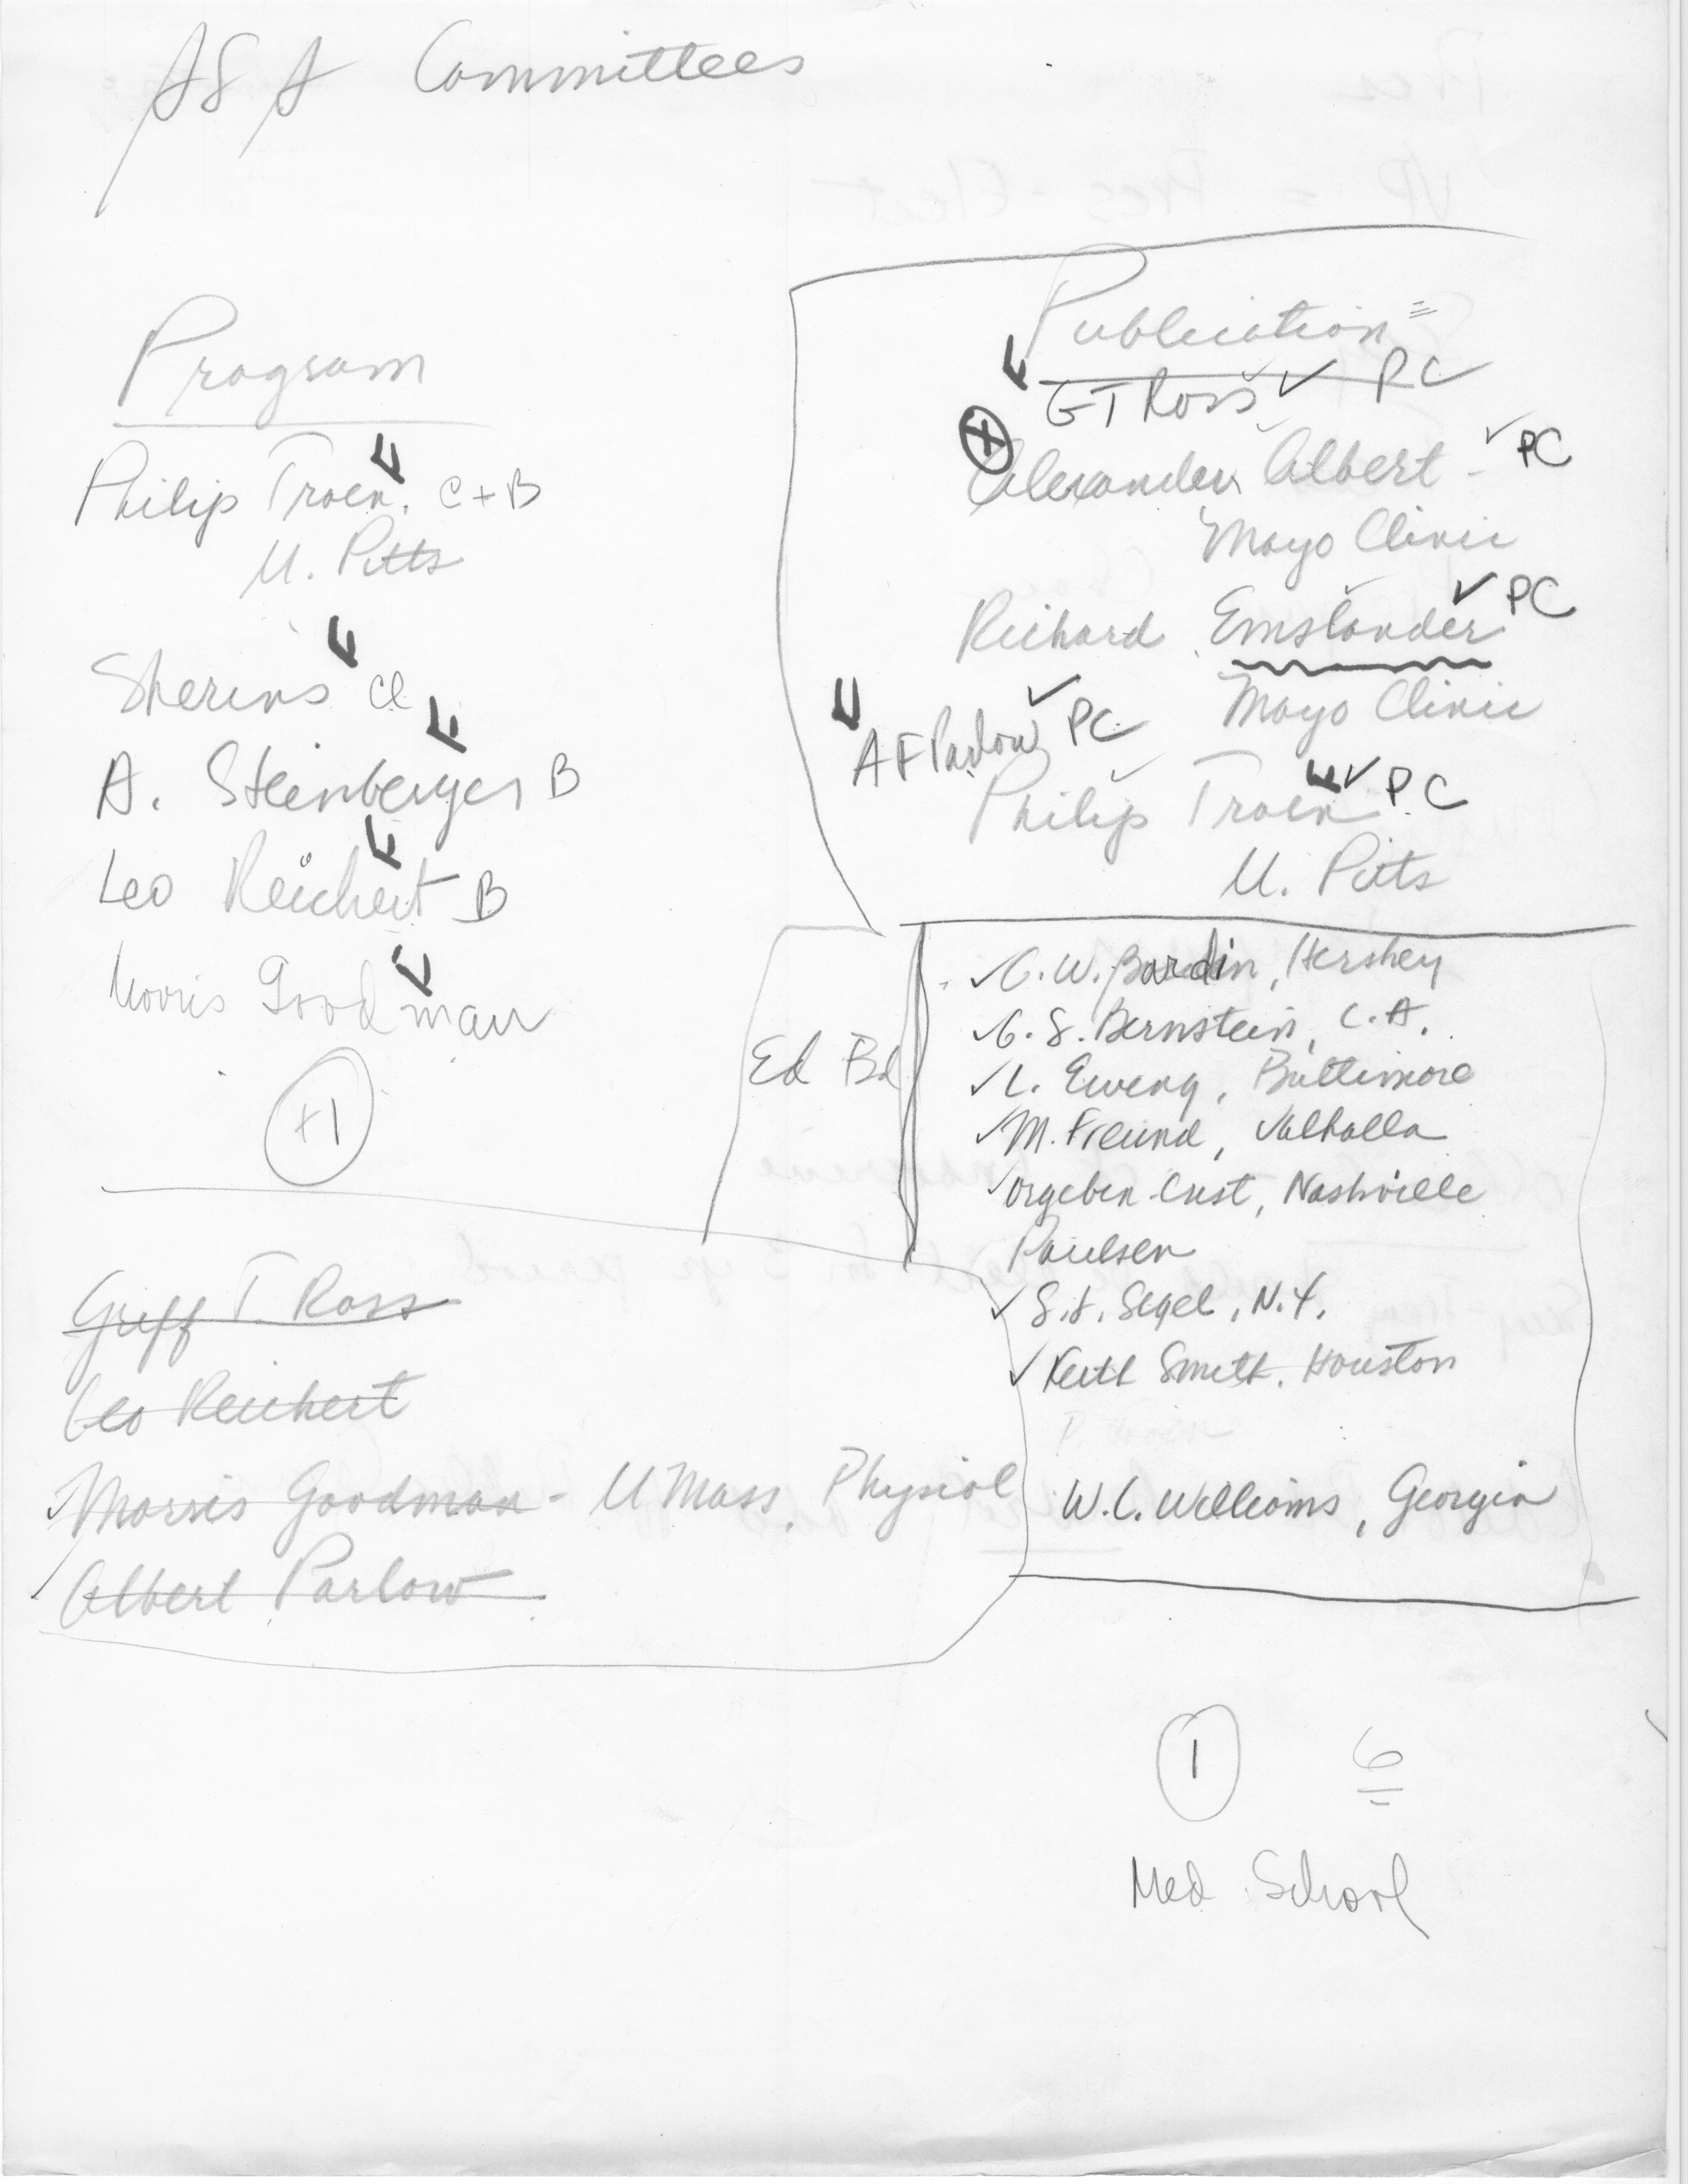 ASA Committees
Program
Philip Troen. C + B
U. Pitts
Sherins Cl
A. Steinberger B
Leo Reichert B
Morris Goodman
+1
Publication
F
GT Ross ✓ PC
Alexander Albert - ✓ PC
Mayo Clinic
Richard Emslander ✓ PC
Mayo Clinic
AF Parlow ✓ PC
Philip Troen F ✓ PC
U. Pitts
Ed Bd
✓ C. W. Bardin, Hershey
✓ G. S. Bernstein, L.A.
✓ L. Ewing, Baltimore
✓ M. Freund, Valhalla
✓ Orgebin-Crist, Nashville
Paulsen
✓ S. J. Segel, N.Y.
✓ Keith Smith, Houston
P. Troen
W. L. Williams, Georgia
Griff T. Ross
Leo Reichert
Morris Goodman - U Mass. Physiol
Albert Parlow
1 6
Med School